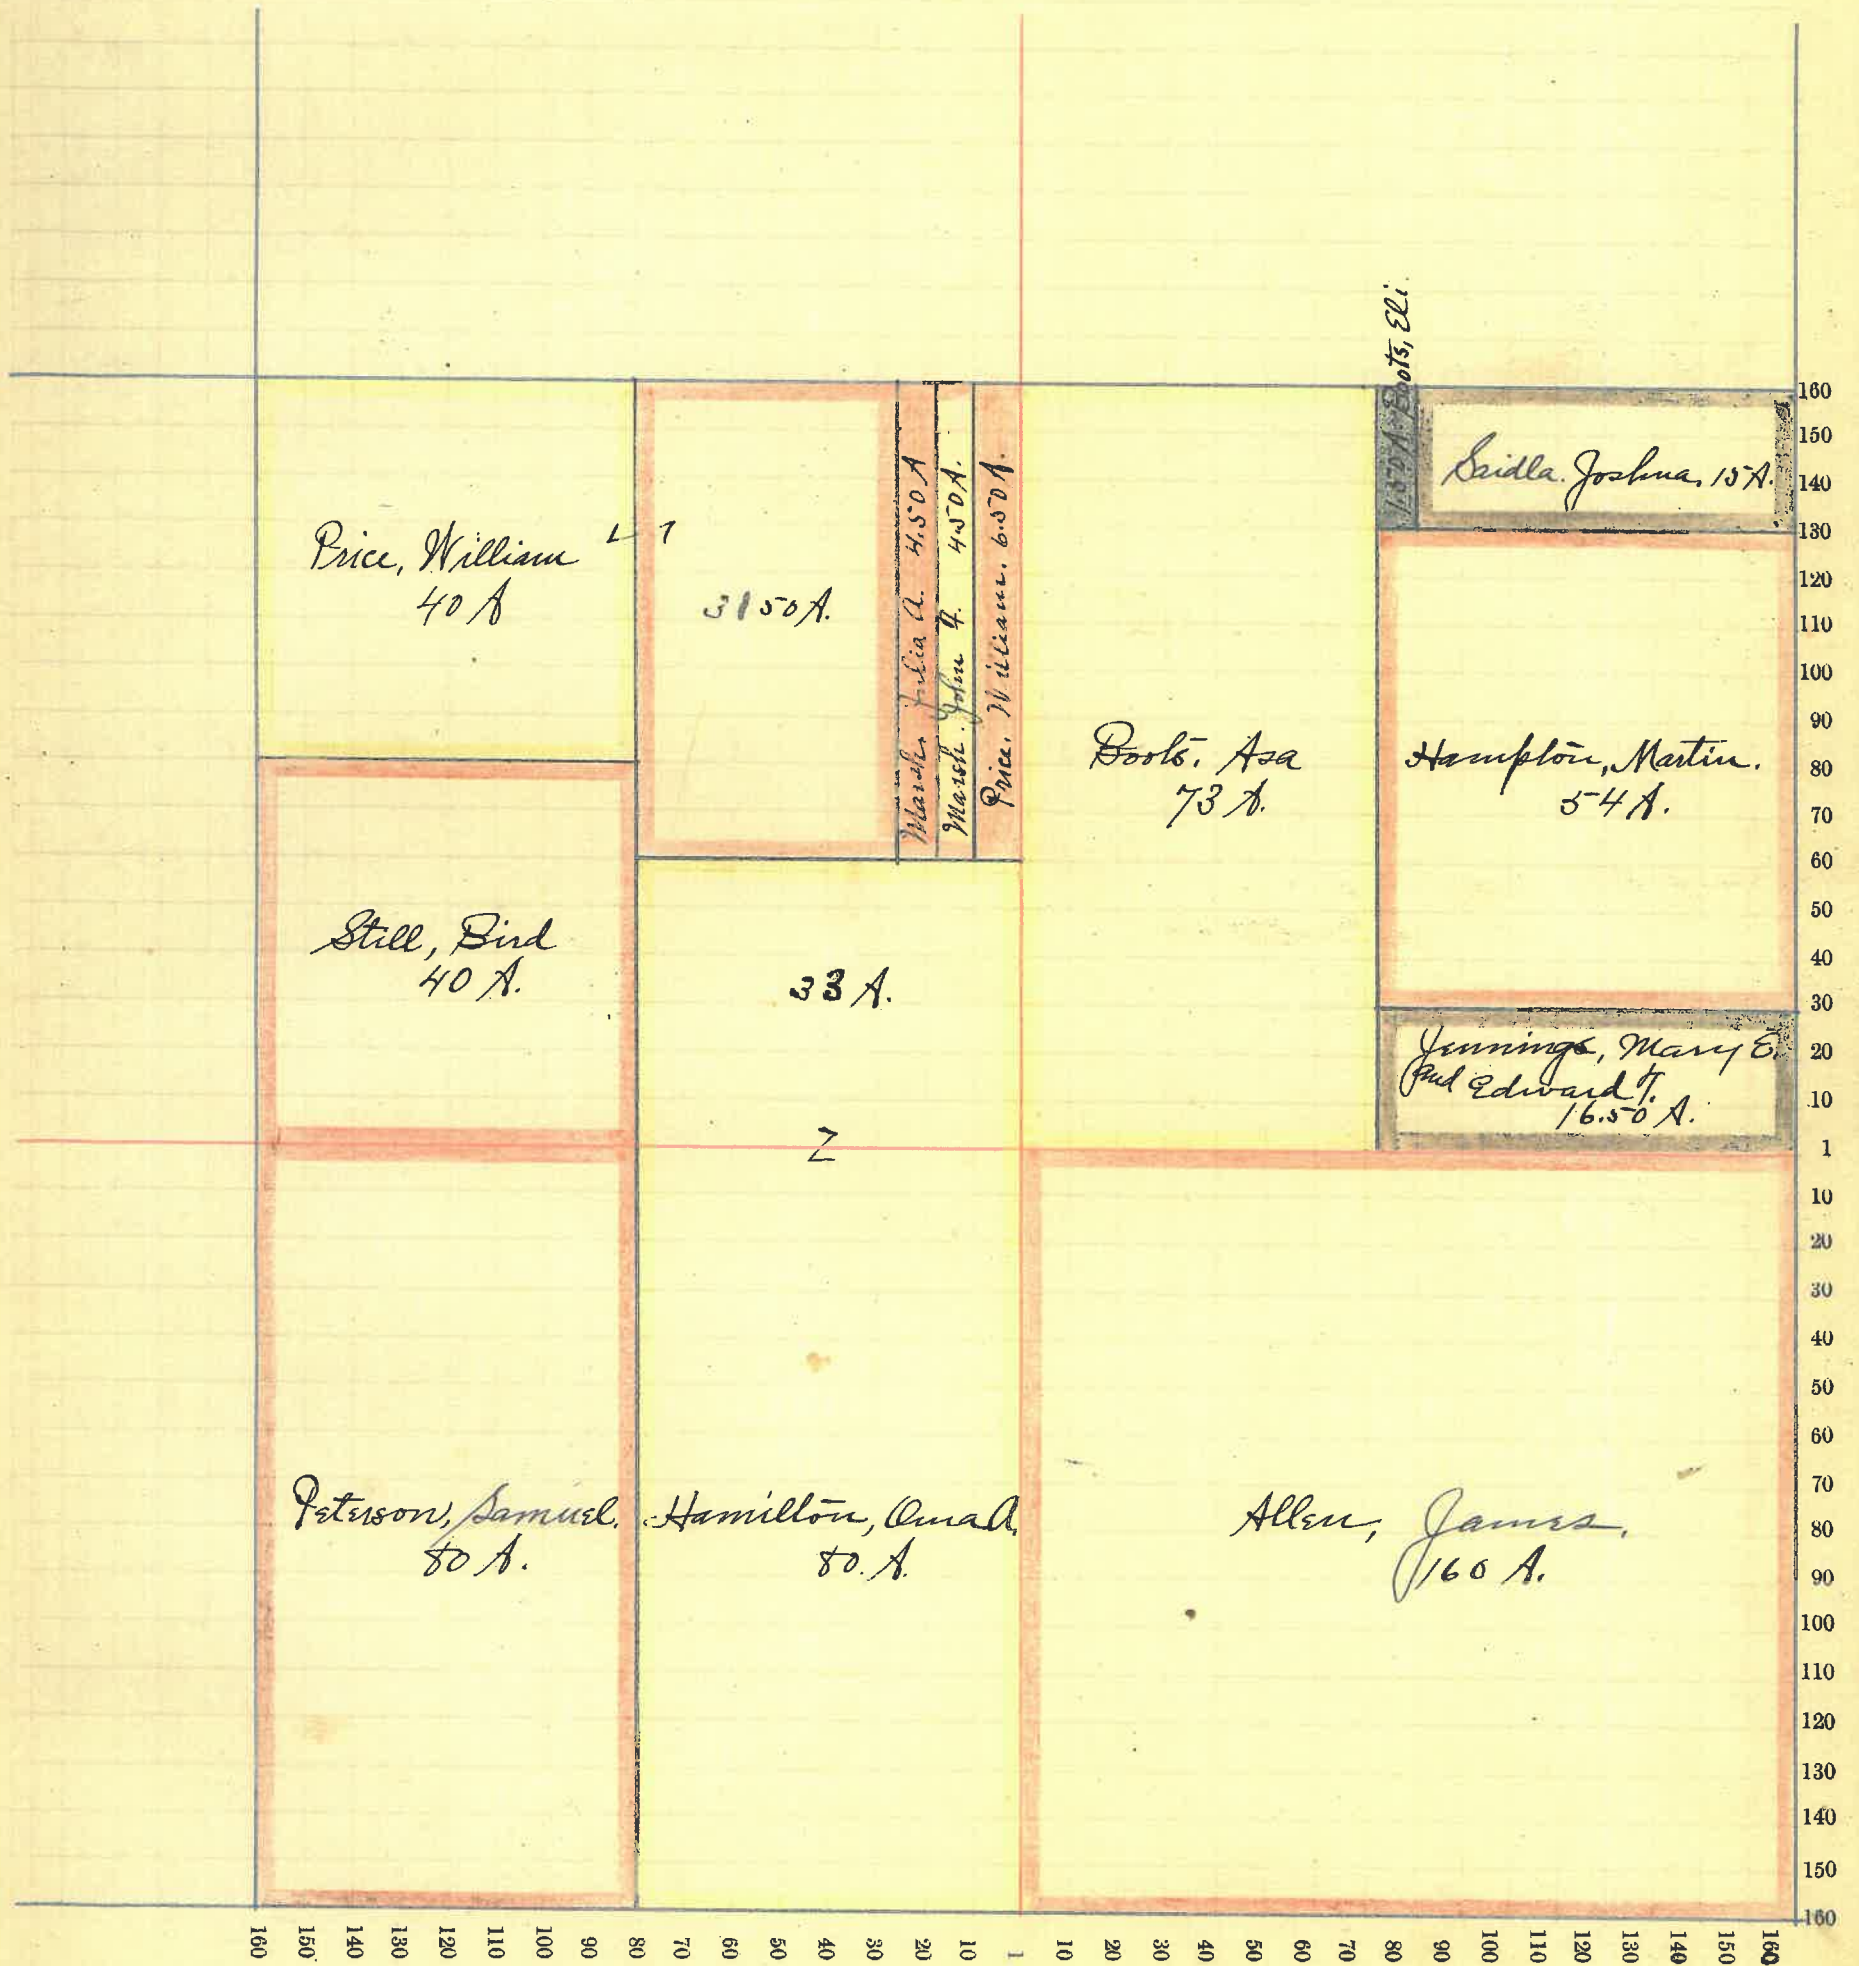 Boots, Eli.
1.50 A.
Saidla. Joshua, 15 A.
Price, William
40 A
3150 A.
Marsh. Julia A. 4.50 A
Marsh. John 4.50 A.
Price, William. 6.50 A.
Boots, Asa
73 A.
Hampton, Martin.
54 A.
Still, Bird
40 A.
33 A.
Jennings, Mary E.
and Edward T.
16.50 A.
Z
Peterson, Samuel.
80 A.
Hamilton, Oma A.
80. A.
Allen, James.
160 A.
160
150
140
130
120
110
100
90
80
70
60
50
40
30
20
10
1
10
20
30
40
50
60
70
80
90
100
110
120
130
140
150
160
160 150 140 130 120 110 100 90 80 70 60 50 40 30 20 10 1 10 20 30 40 50 60 70 80 90 100 110 120 130 140 150 160